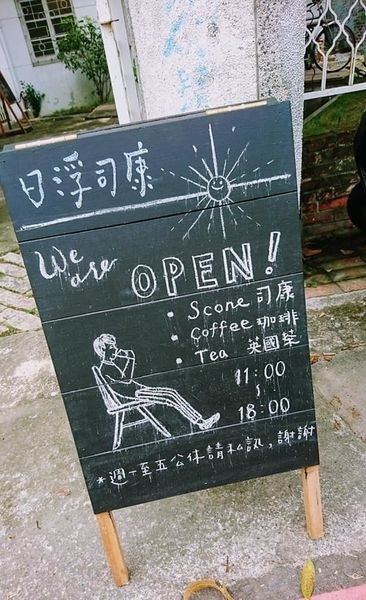 日浮司康
We are OPEN!
• Scone 司康
• Coffee 珈琲
• Tea 英國茶
11:00
~
18:00
*週一至五公休請私訊,謝謝